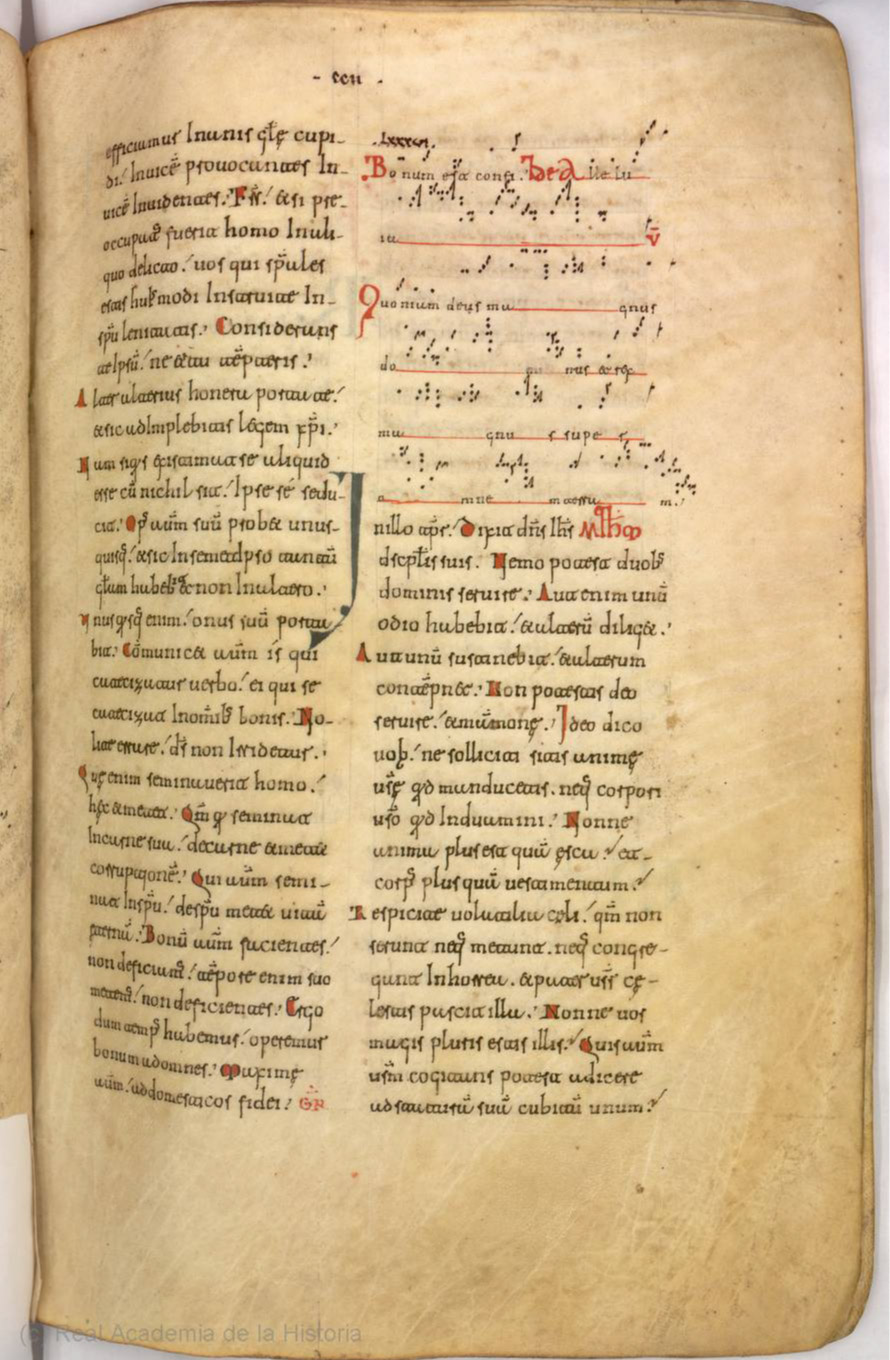 - xcu -
efficiamur Inanis glę cupi-
di. Inuicē prouocantes In-
uicē Inuidentes. Fr̄s. & si pre-
occupat᷒ fuerit homo In ali-
quo delicto. uos qui sp̄ales
estis hui᷒modi Instruite In-
sp̄u leniatis. Considerans
te Ipsū. ne & tu tēpteris.
Alter alterius honera portate.
& sic adImplebitis legem xp̄i.
Nam siq̄s existimat se aliquid
esse cū nichil sit. Ipse sē sedu-
cit. Op᷒ aūm suū probet unus-
quisq̄. & sic In semedpso tantū
glam habebit & non In altero.
Vnusq̄sq̄ enim. onus suū porta-
bit. Cōmunicet aūm is qui
catezizatur uerbo. ei qui se
catezizat In omib᷒ bonis. No-
lite errare. d̄s non Irridetur.
Quę enim seminauerit homo.
hęc & metet. Qm̄ q̄ seminat
In carne sua. de carne & metet
corruptionē. Qui aūm semi-
nat In sp̄u. de sp̄u metet uitā
eternā. Bonū aūm facientes.
non deficiam᷒. tēpore enim suo
metem᷒. non deficientes. Ergo
dum temp᷒ habemus. operemur
bonum ad omnes. Maxime
aūm. ad domesticos fidei. GR̄
Bonum est confi. Alleluia
ia V̄
Quoniam deus ma gnus
do mi nus & rex
ma gnu s supe r
o mne m terra m.
In illo tp̄r. Dixit dn̄s Ihs̄
discpłis suis. Nemo potest duob᷒
dominis seruire. Aut enim unū
odio habebit. & alterū diliget.
Aut unū sustinebit. & alterum
contēpnet. Non potestis deo
seruire. & mamonę. Ideo dico
uob᷒. ne solliciti sitis animę
ur̄ę q̄d manducetis. neq̄ corpori
ur̄o q̄d Induamini. Nonne
anima plus est quā ęsca. et-
corp᷒ plus quā uestimentum.
Respicite uolatilia cęli. qm̄ non
serunt neq̄ metunt. neq̄ congre-
gant In horrea. & pater ur̄r cę-
lestis pascit illa. Nonne uos
magis pluris estis illis. Quis aūm
ur̄m cogitans potest adicere
ad staturā suā cubitū unum.
(c) Real Academia de la Historia